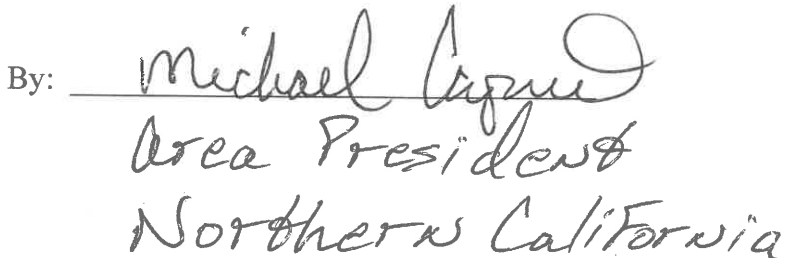 By: Michael
Area President
Northern California